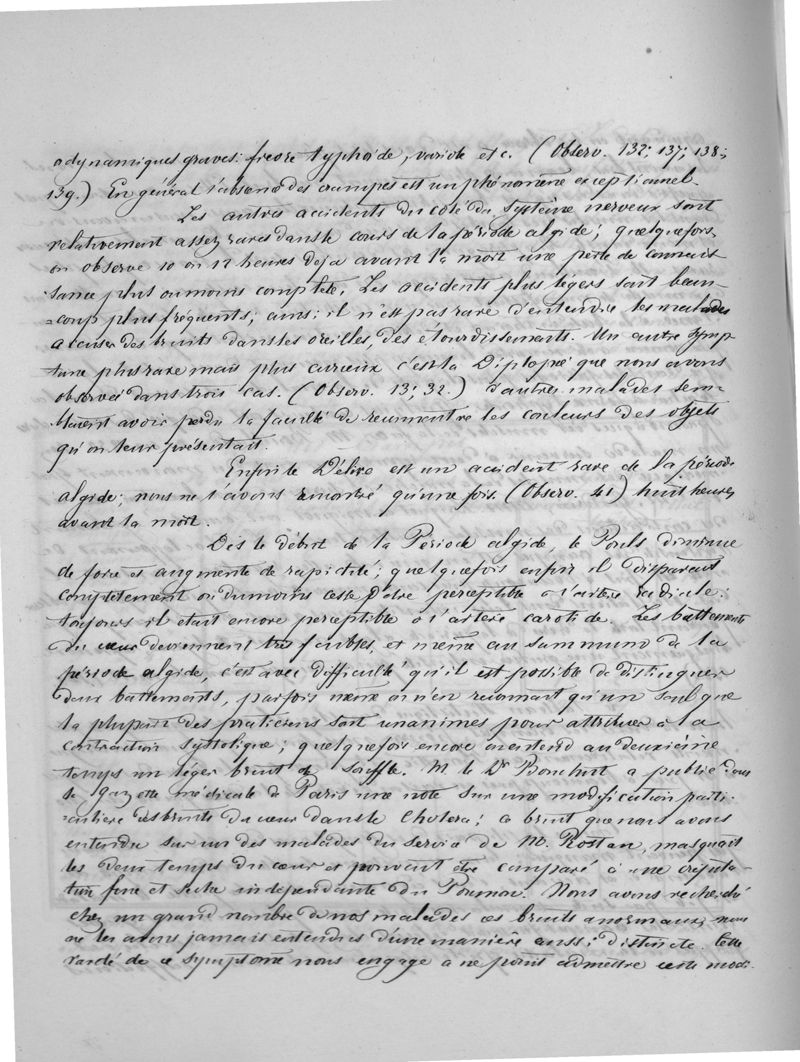 adynamiques graves: fievre typhoïde, variole etc. (Observ. 132; 137; 138;
139.) En général l'absence des crampes est un phénomène exceptionnel.
Les autres accidents du coté du Système nerveux sont
relativement assez rares dans le cours de la période algide; quelquefois
on observe 10 ou 12 heures deja avant la mort une perte de connais-
sance plus ou moins complète. Les accidents plus légers sont beau-
=coup plus fréquents; ainsi il n'est pas rare d'entendre les malades
accuser des bruits dans les oreilles, des étourdissements. Un autre symp-
tôme plus rare mais plus curieux c'est la Diplopie que nous avons
observée dans trois cas. (Observ. 13; 32.) D'autres malades sem-
blaient avoir perdu la faculté de reconnaitre les couleurs des objets
qu'on leur présentait.
Enfin le Délire est un accident rare de la période
algide; nous ne l'avons rencontré qu'une fois. (Observ. 41) huit heures
avant la mort.
Dès le début de la Période algide, le Pouls diminue
de force et augmente de rapidité; quelquefois enfin il disparait
complètement ou du moins cesse d'etre perceptible à l'artère radiale:
toujours il était encore perceptible à l'artère carotide. Les battements
du cœur deviennent très faibles, et même au summum de la
période algide, c'est avec difficulté qu'il est possible de distinguer
deux battements, parfois même on n'en reconnait qu'un seul que
la plupart des praticiens sont unanimes pour attribuer à la
contraction systolique; quelquefois encore on entend au deuxième
temps un léger bruit de souffle. M. le Dr Bouchut a publié dans
la Gazette médicale de Paris une note sur une modification parti-
culière des bruits du cœur dans le Choléra; ce bruit que nous avons
entendu sur un des malades du service de M. Rostan, masquait
les deux temps du cœur et pouvait être comparé à une crépita-
tion fine et sèche indépendante du Poumon. Nous avons recherché
chez un grand nombre de nos malades ces bruits anormaux, nous
ne les avons jamais entendus d'une manière aussi distincte. Cette
rareté de ce symptôme nous engage à ne point admettre cette modi-